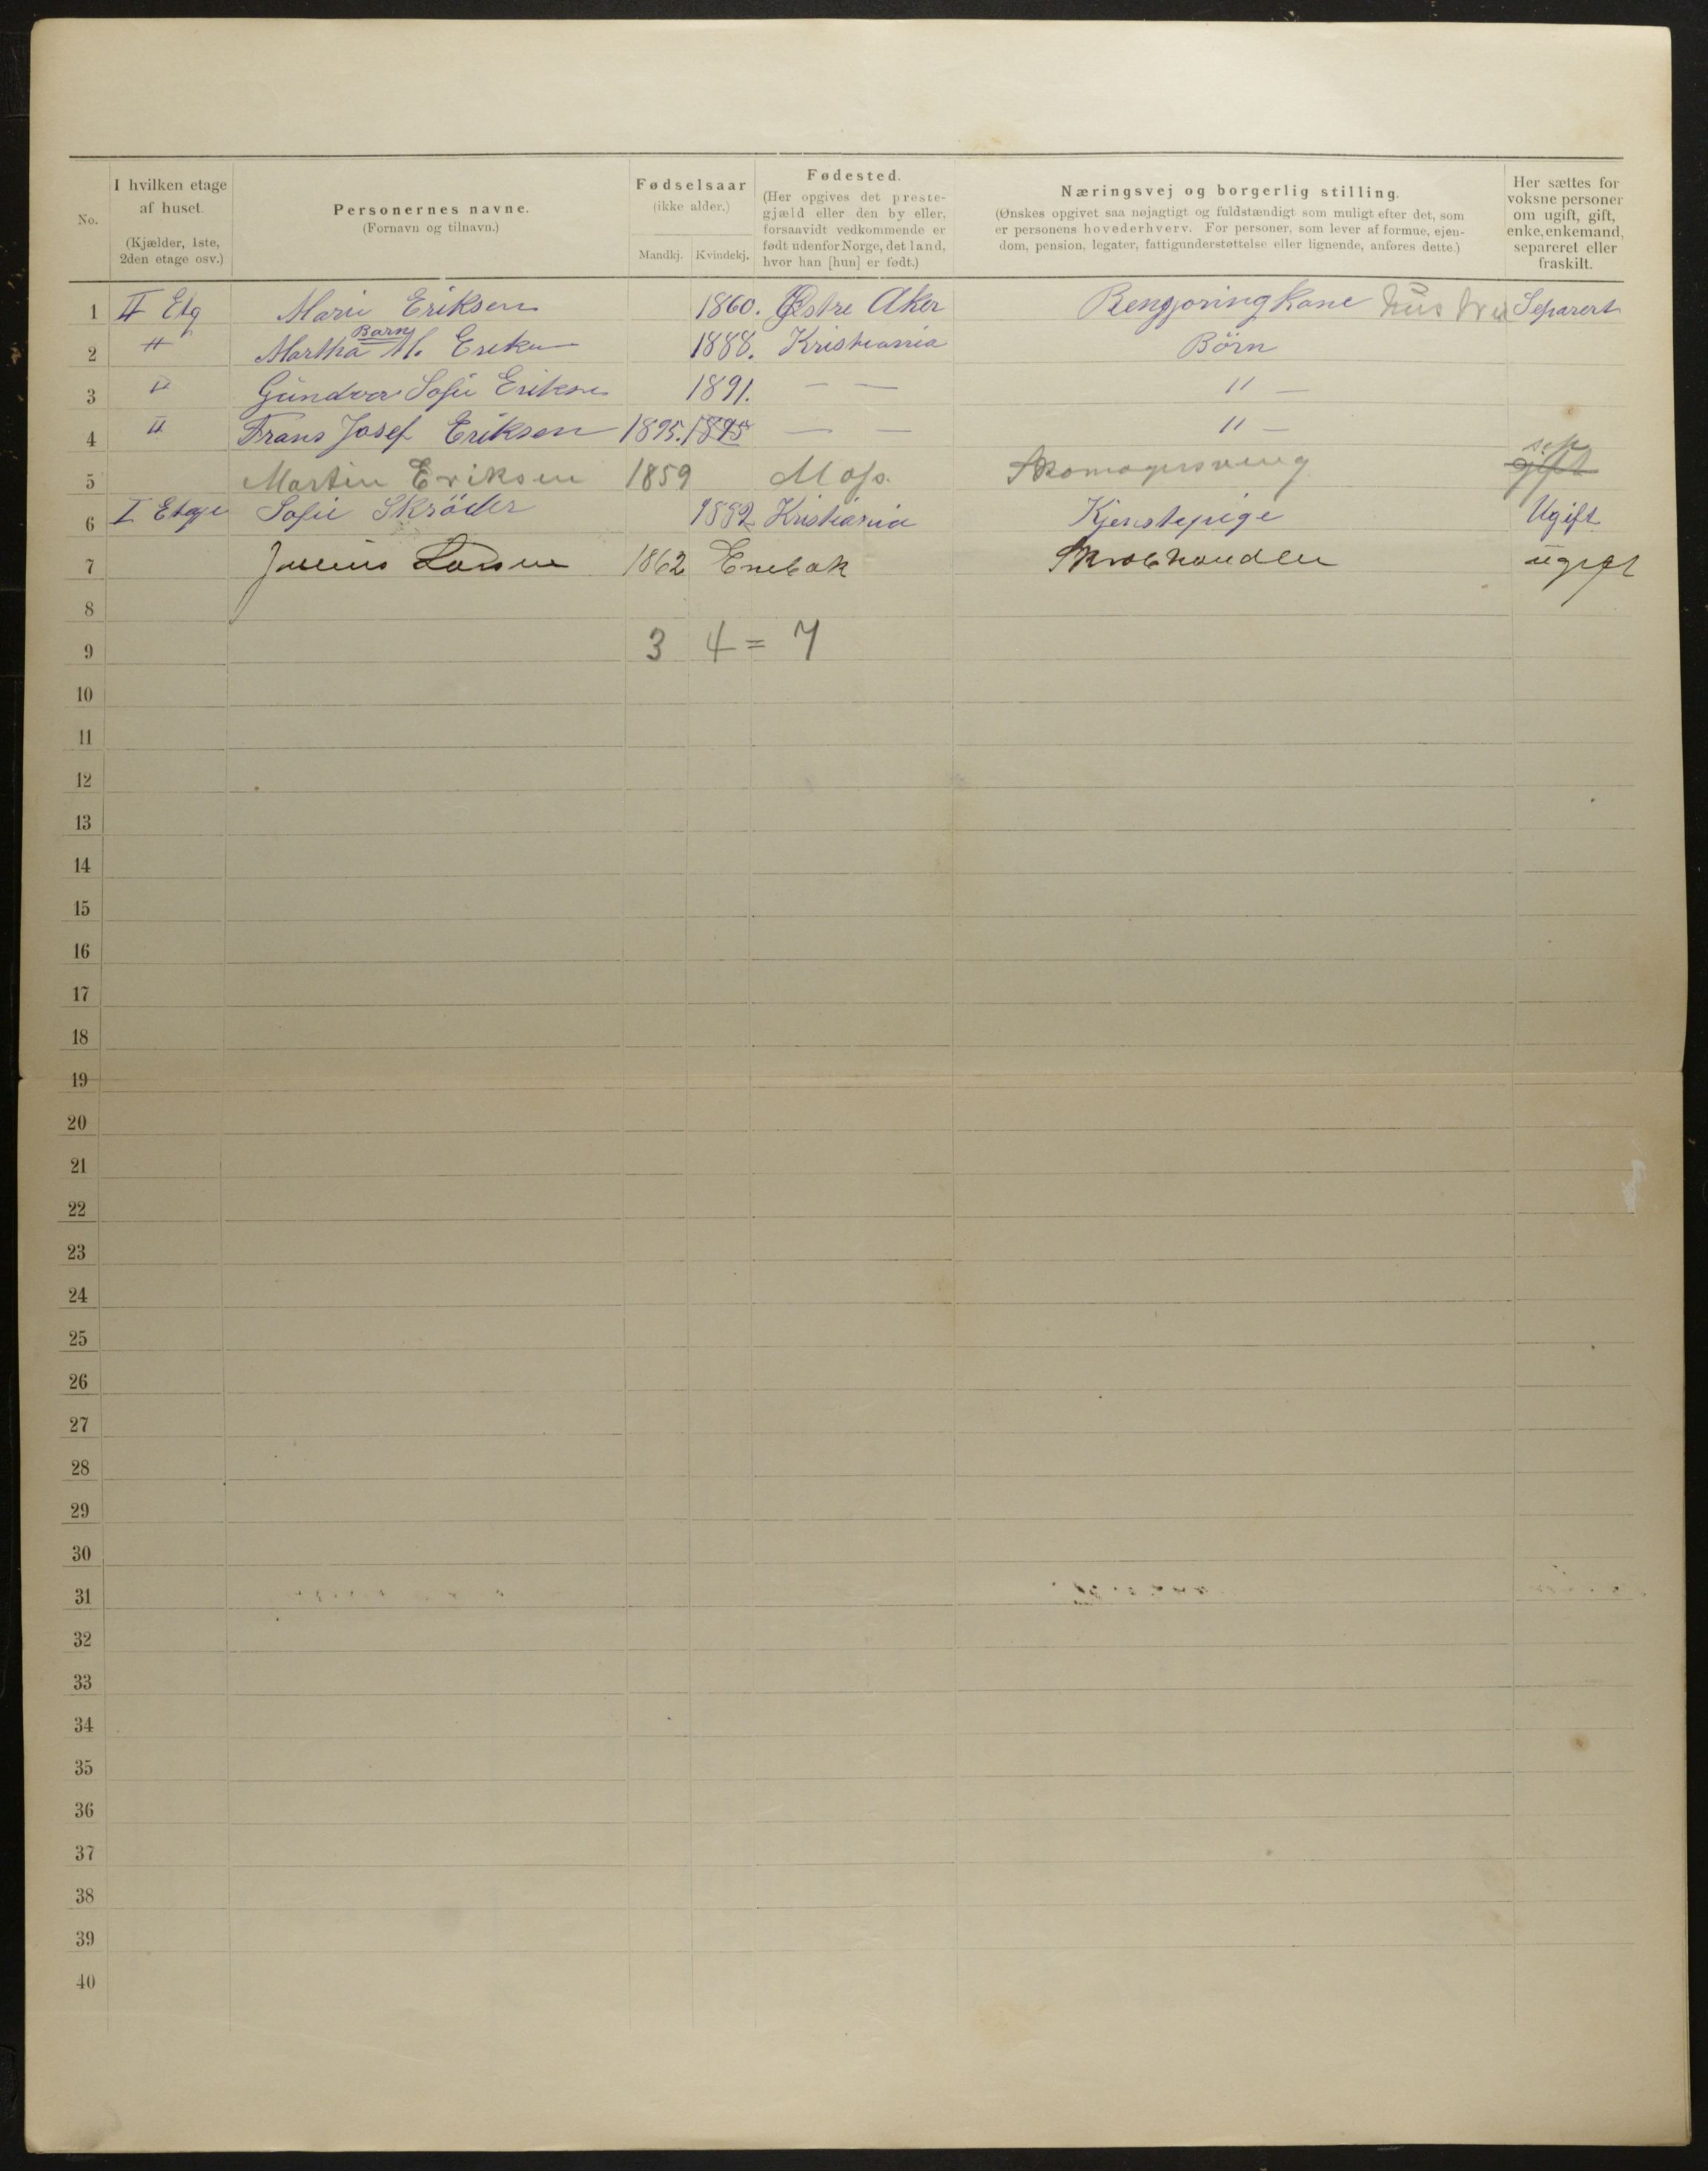 No.
I hvilken etage
af huset.
(Kjælder, 1ste,
2den etage osv.)
Personernes navne.
(Fornavn og tilnavn.)
Fødselsaar
(ikke alder.)
Mandkj. Kvindekj.
Fødested.
(Her opgives det preste-
gjæld eller den by eller,
forsaavidt vedkommende er
født udenfor Norge, det land,
hvor han [hun] er født.)
Næringsvej og borgerlig stilling.
(Ønskes opgivet saa nøjagtigt og fuldstændigt som muligt efter det, som
er personens hovederhverv. For personer, som lever af formue, ejen-
dom, pension, legater, fattigunderstøttelse eller lignende, anføres dette.)
Her sættes for
voksne personer
om ugift, gift,
enke, enkemand,
separeret eller
fraskilt.
1 II Etg Marie Eriksen 1860. Østre Aker Rengjøringkone Separert
Barn
2 " Martha M. Eriksen 1888. Kristiania Børn
3 " Gundvor Sofie Eriksen 1891. — — " —
4 " Frans Josef Eriksen 1895. 1895 — — " —
sep
5 Martin Eriksen 1859 Moss. Skomagersveng gift
6 I Etage Sofie Skrøder 1882 Kristiania Tjenstepige Ugift
7 Julius Larsen 1862 Enebak Skrabhandler ugift
8
9 3 4 = 7
10
11
12
13
14
15
16
17
18
19
20
21
22
23
24
25
26
27
28
29
30
31
32
33
34
35
36
37
38
39
40